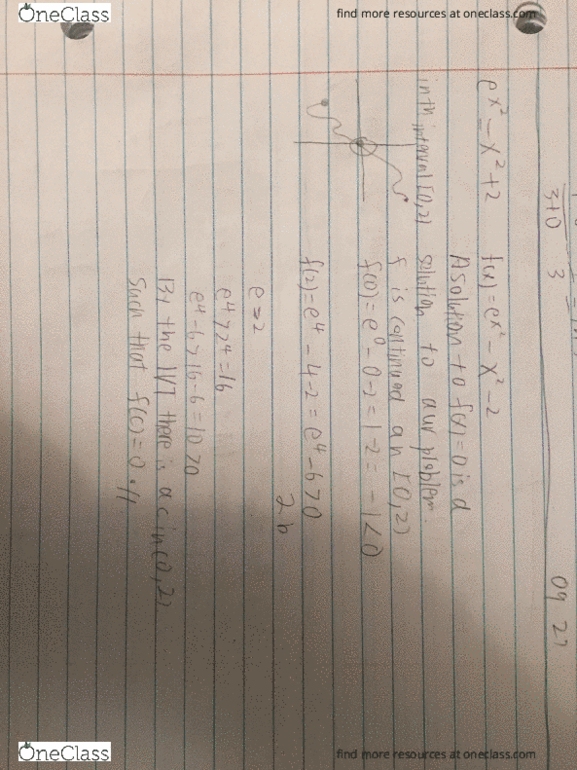 OneClass
find more resources at oneclass.com
3+0 3
09 27
e^x² - x² + 2 f(x) = e^x² - x² - 2
A solution to f(x) = 0 is a
in th interval [0,2) solution to our problem.
f is continued an [0,2)
f(0) = e⁰ - 0 - 2 = 1 - 2 = -1 < 0
f(2) = e⁴ - 4 - 2 = e⁴ - 6 > 0
2.6
e > 2
e⁴ > 2⁴ = 16
e⁴ - 6 > 16 - 6 = 10 > 0
By the IVT there is a c in (0,2)
such that f(c) = 0 //
OneClass
find more resources at oneclass.com